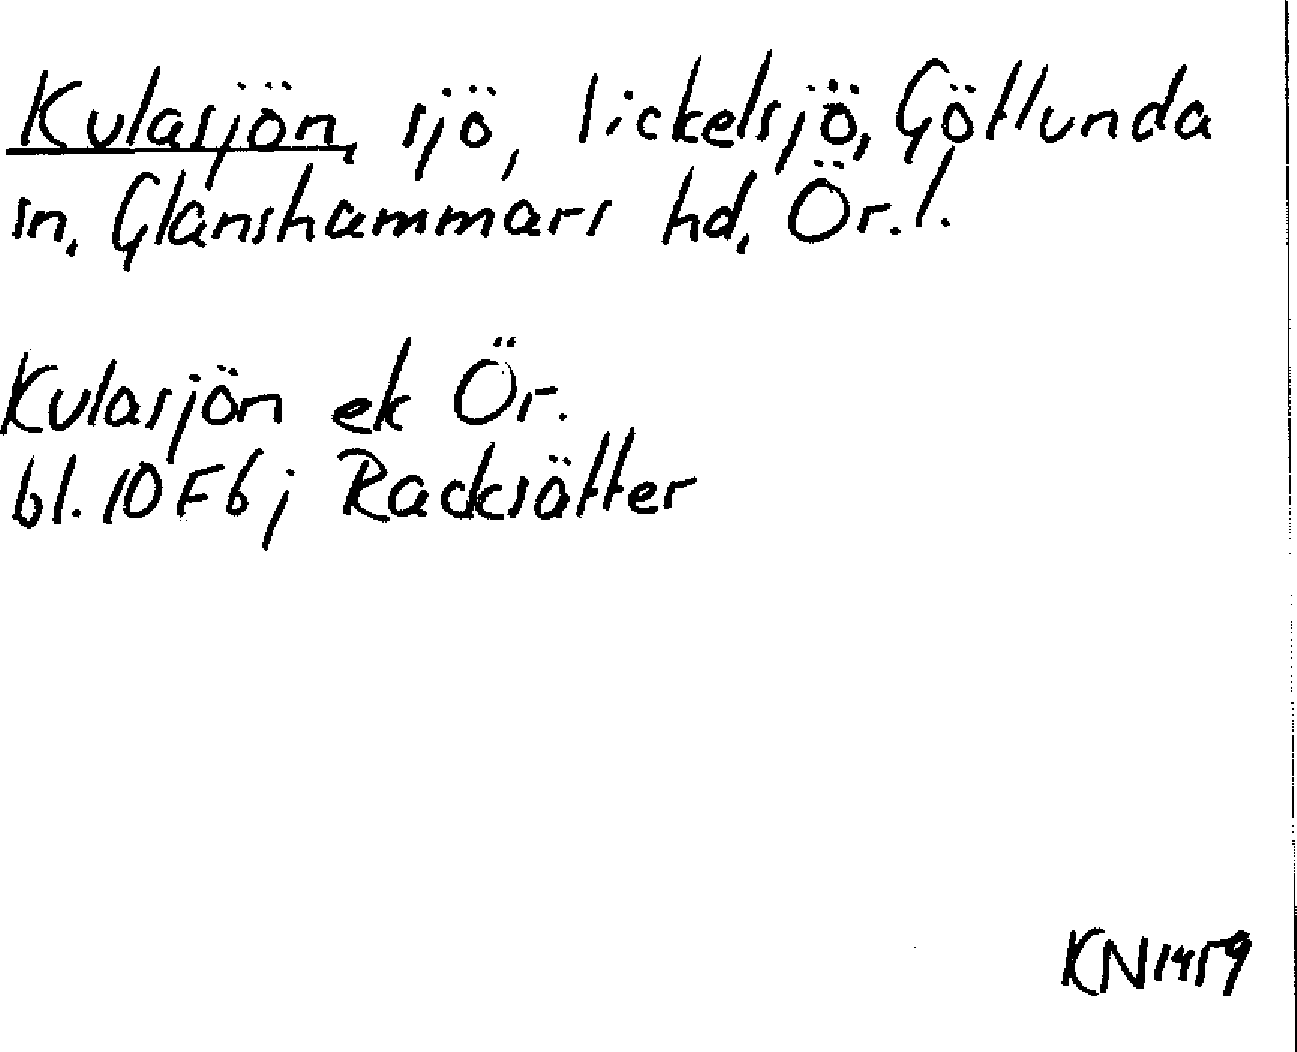 Kulasjön, sjö, lickelsjö, Götlunda
sn, Glanshammars hd, Ör. l.
Kulasjön ek Ör.
bl. 10F6j Racksätter
KN1459